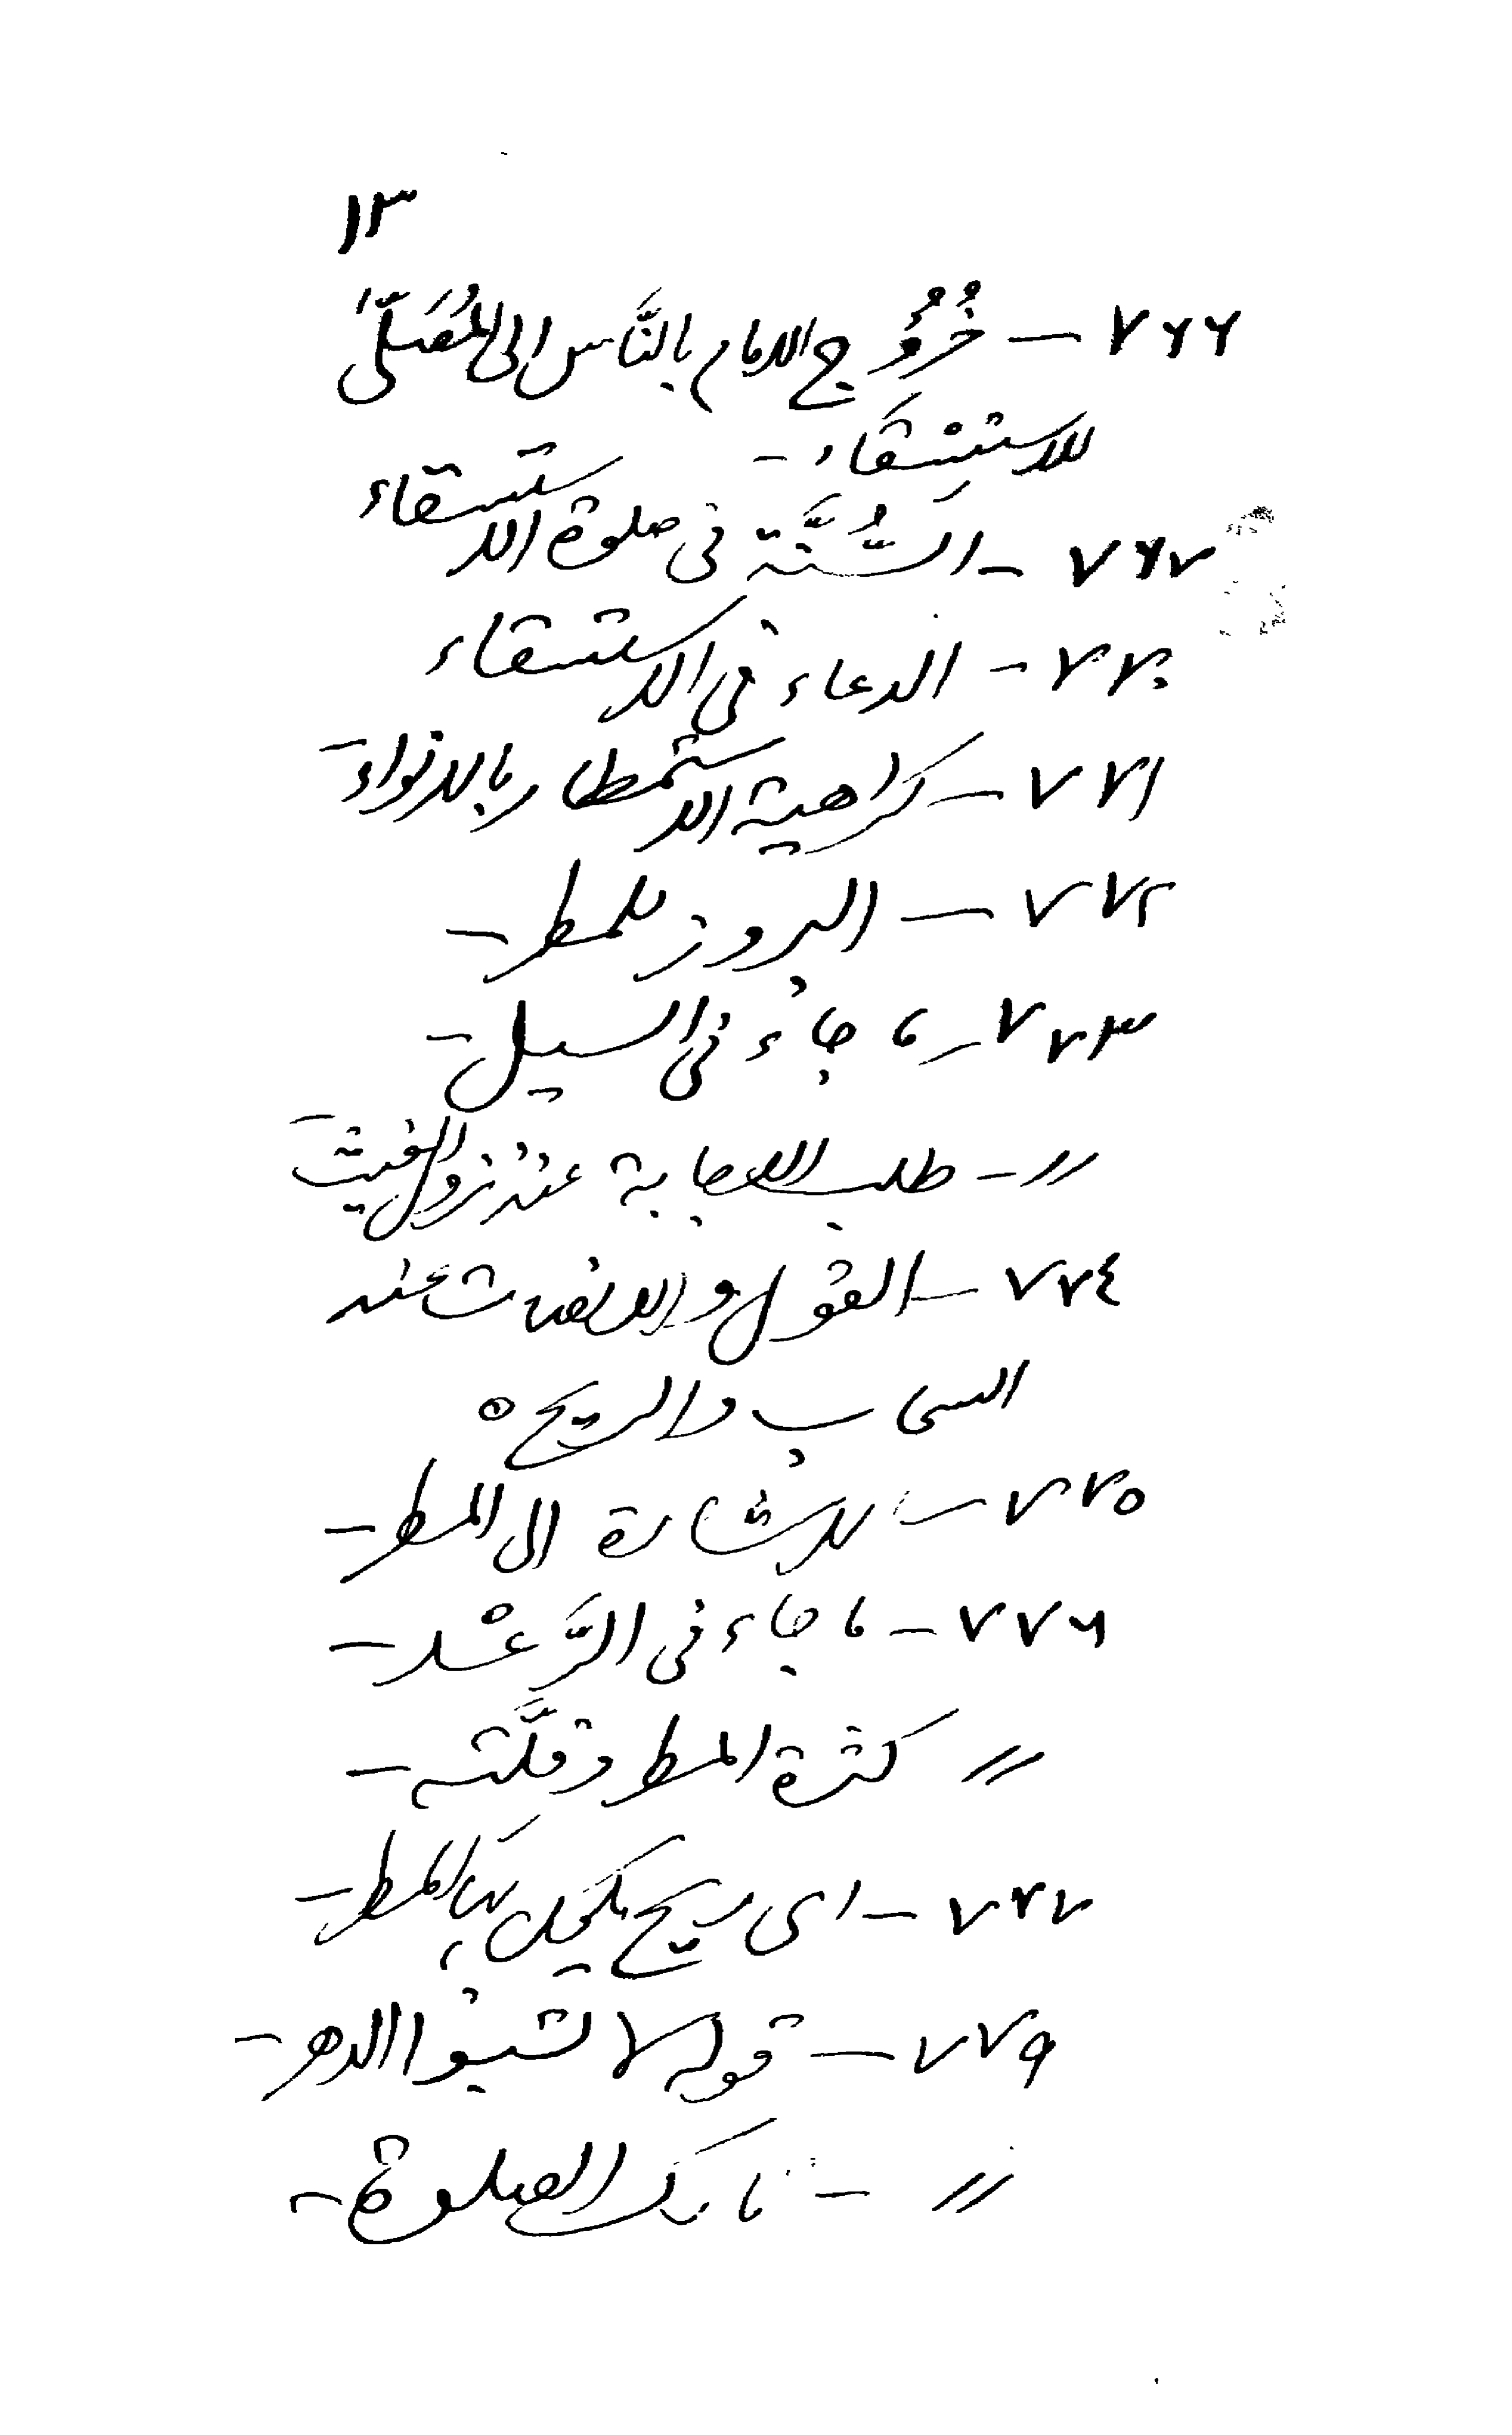 ١٣
٧٦٦ – خُرُوُج الامام بالنَّاس الى المُصَلّىٰ
للاستِسْقَاء –
٧٦٧ – السُّنَّة فى صلوة الاستسقاء
٧٧٠ – الدعاء فى الاستسقاء
٧٧١ – كراهية الاستمطار بالانواء –
٧٧٢ – البروز للمطر –
٧٧٣ – ما جاء فى السيل –
〃 – طلب الاجابة عند نزول الغيث –
٧٧٤ – القول والانصات عند
السحاب والريح ٥
٧٧٥ – الاشارة الى المطر –
٧٧٦ – ما جاء فى الرَّعْد –
〃 كثرة المطر وقلّته –
٧٧٧ – اى ريح يكون بها المطر –
٧٧٩ – قوله لا تسبوا الدهر –
〃 – تارك الصلوة –